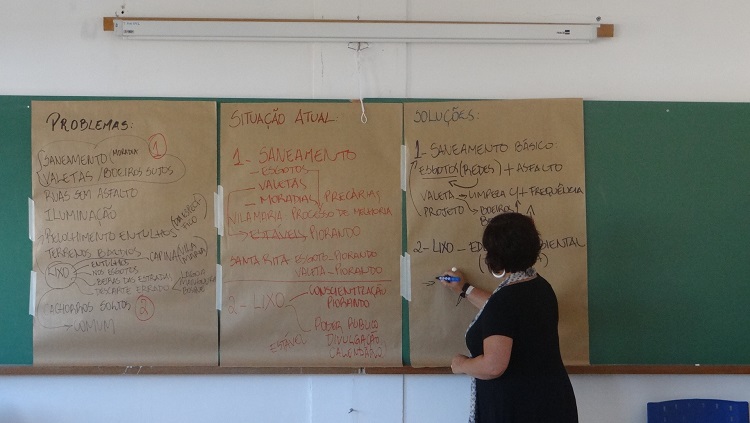 PROBLEMAS:
SANEAMENTO (MORADIA 1
VALETAS / BOEIROS SUJOS
RUAS SEM ASFALTO
ILUMINAÇÃO
RECOLHIMENTO ENTULHOS
TERRENOS BALDIOS
CAPINA
LIXO
ENTULHOS
NOS ESGOTOS
BEIRAS DAS ESTRADAS
DESCARTE ERRADO
CACHORROS SOLTOS 2
COMUM
SITUAÇÃO ATUAL:
1- SANEAMENTO
- ESGOTOS
VALETAS
- MORADIAS PRECÁRIAS
VILA MARIA PROCESSO DE MELHORIA
ESTÁVEIS PIORANDO
SANTA RITA- ESGOTO- PIORANDO
VALETA - PIORANDO
2- LIXO
CONSCIENTIZAÇÃO
PIORANDO
PODER PÚBLICO
ESTÁVEL
DIVULGAÇÃO
CALENDÁRIO
SOLUÇÕES:
1- SANEAMENTO BÁSICO
ESGOTOS (REDES) + ASFALTO
VALETA LIMPEZA C/ + FREQUÊNCIA
PROJETO BOEIROS
2- LIXO -